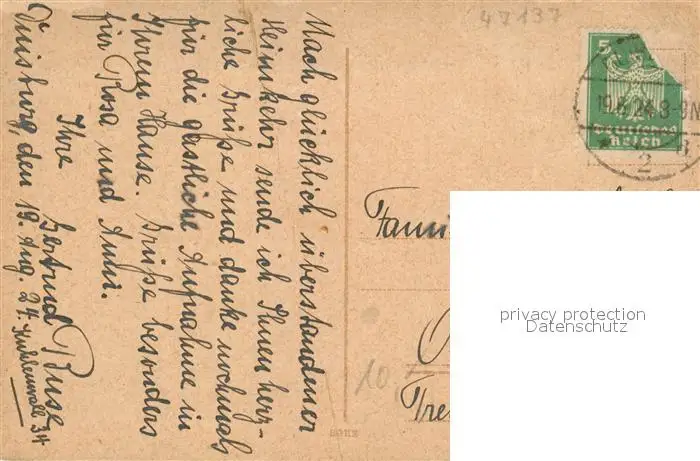 47137
Nach glücklich überstandener
Heimkehr sende ich Ihnen herz-
liche Grüße und danke nochmals
für die gastliche Aufnahme in
Ihrem Hause. Grüße besonders
für Rosa und Anni.
Ihre
Gertrud Buse
Duisburg, den 19. Aug. 24. Kuhlenwall 34
5
Deutsches
Reich
8-9N
2
Fami
Tre
10.
privacy protection
Datenschutz